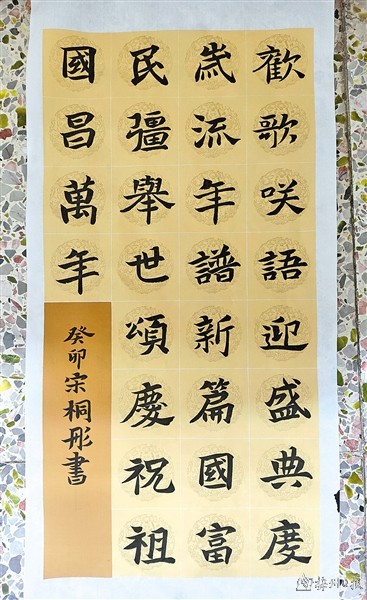 歡歌咲語迎盛典度
嵗流年譜新篇國富
民彊舉世頌慶祝祖
國昌萬年
癸卯宋桐彤書
梅州日报